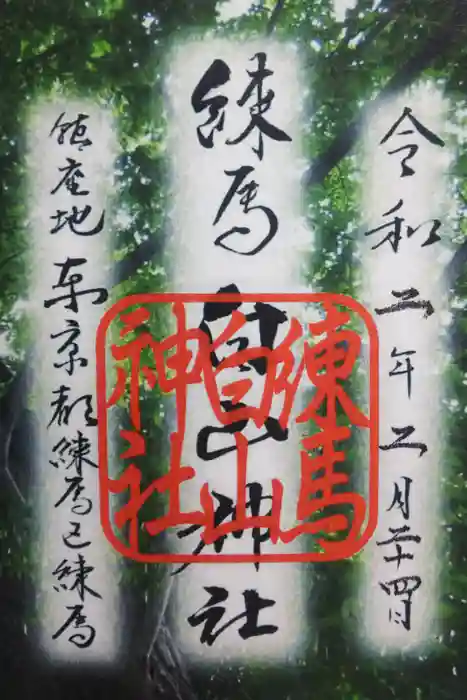 令和二年二月二十四日
練馬白山神社
練馬
白山
神社
鎮座地 東京都練馬区練馬